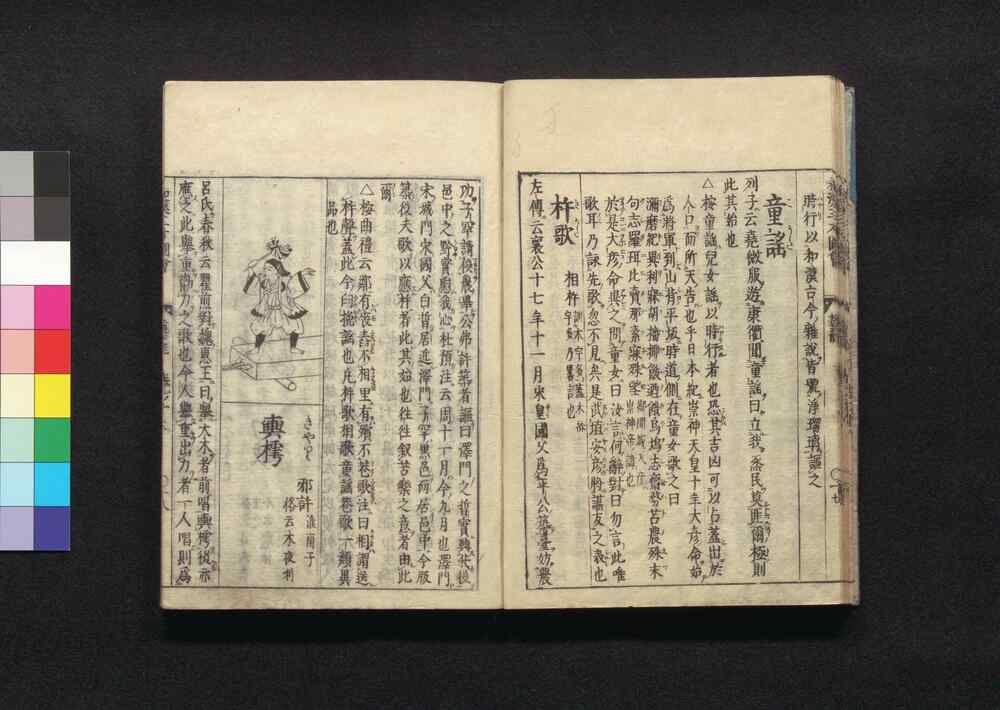 時行以和漢古今雜說皆置淨瑠璃謳之
童謠
列子云堯微服游康衢聞童謠曰立我烝民莫匪爾極則
此其始也
△按童謠兒女謠以時行者也恐其吉凶可以占蓋出於
人口而所天告也乎日本紀崇神天皇十年大彦命始
爲將軍到山背平坂時道側在童女歌之曰
句志羅
於是大彦命異之問童女曰汝言何辭對曰勿言此唯
歌耳乃詠先歌忽不見矣是武埴安彦將謀反之表也
杵歌
相杵
左傳云襄公十七年十一月宋皇國父爲平公築臺妨農
功子罕請俟農畢公弗許築者謳曰澤門之晳實興我役
邑中之黔實慰我心杜預注云周十一月今九月也澤門
宋城門宋國父白晳居近澤門子罕黑色而居邑中今版
築役夫歌以應杵者此其始也往往叙苦樂之意者由此
爾
△按曲禮云鄰有喪舂不相里有殯不巷歌注曰相謂送
杵聲蓋此今曰挽謠也凡杵歌相歌童謠巷歌一類異
品也
きやり
輿樗
邪許 淮南子
俗云木夜利
呂氏春秋云翟煎對魏惠王曰擧大木者前唱輿樗後亦
應之此擧重勸力之歌也今人擧重出力者一人唱則爲